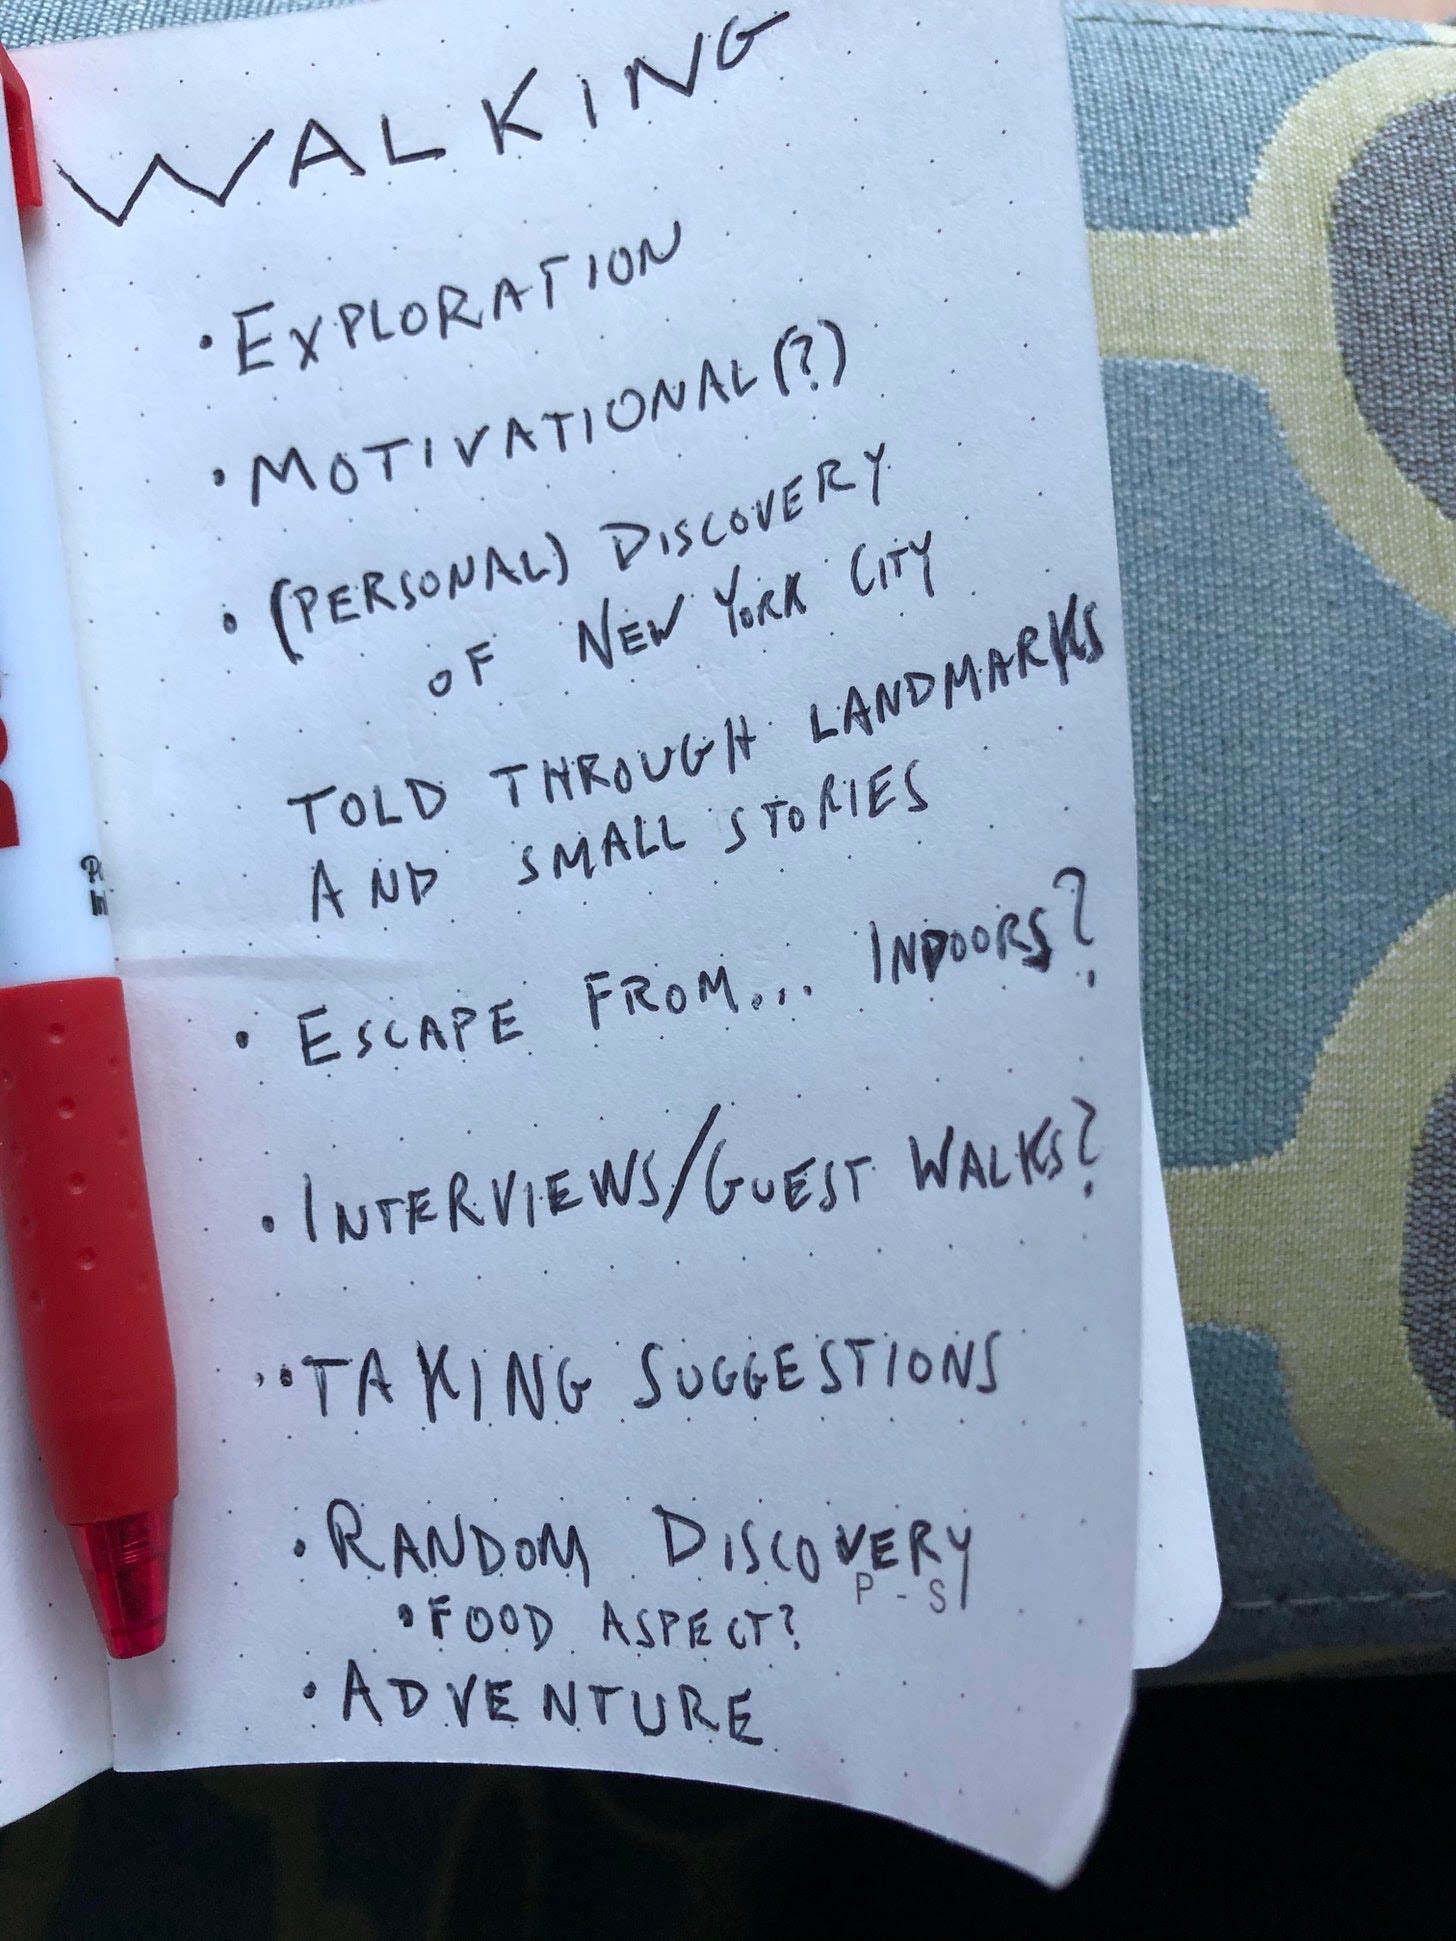 WALKING
• EXPLORATION
• MOTIVATIONAL (?)
• (PERSONAL) DISCOVERY
OF NEW YORK CITY
TOLD THROUGH LANDMARKS
AND SMALL STORIES
• ESCAPE FROM... INDOORS?
• INTERVIEWS/GUEST WALKS?
• TAKING SUGGESTIONS
• RANDOM DISCOVERY
P-S
• FOOD ASPECT?
• ADVENTURE